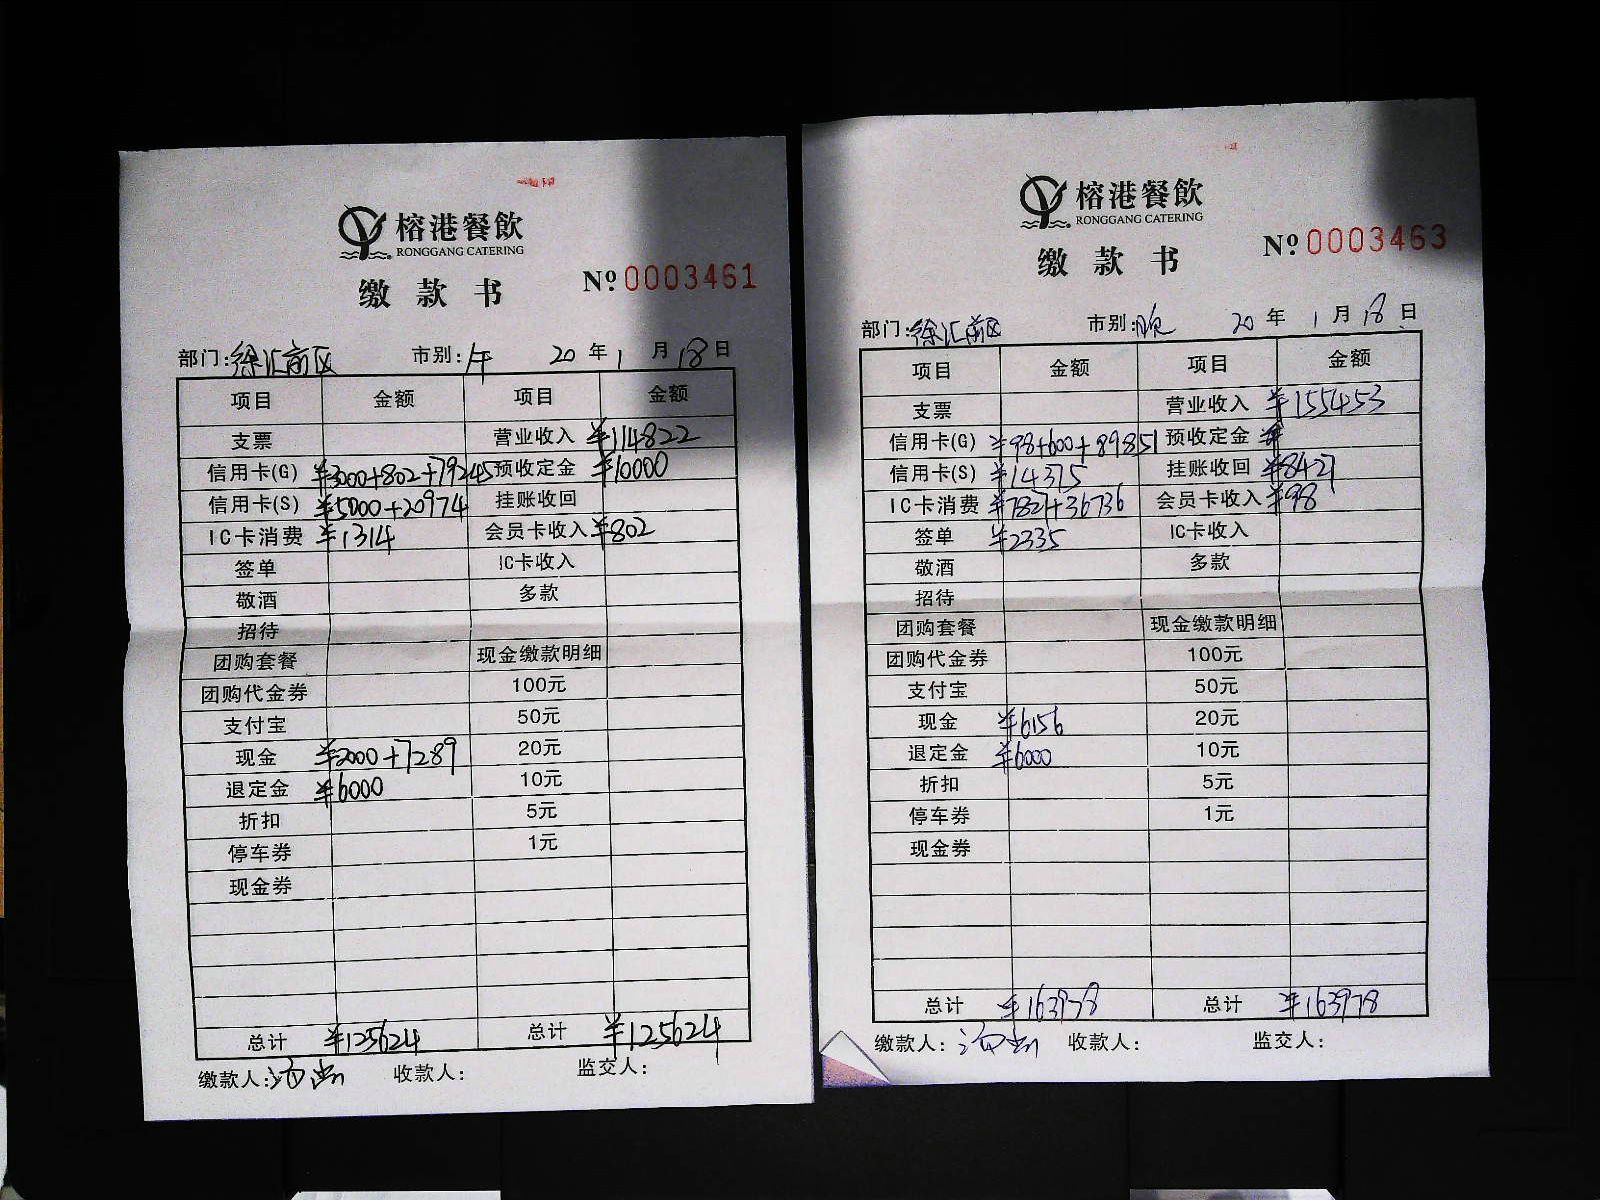 榕港餐飲
RONGGANG CATERING
缴款书
№ 0003461
部门:徐汇前区 市别:午 20年1月18日
项目 金额 项目 金额
支票 营业收入 ¥114822
信用卡(G) ¥3000+802+79245 预收定金 ¥10000
信用卡(S) ¥5000+20974 挂账收回
IC卡消费 ¥1314 会员卡收入 ¥802
签单 IC卡收入
敬酒 多款
招待
团购套餐 现金缴款明细
团购代金券 100元
支付宝 50元
现金 ¥2000+7289 20元
退定金 ¥6000 10元
折扣 5元
停车券 1元
现金券
总计 ¥125624 总计 ¥125624
缴款人: 收款人: 监交人:
榕港餐飲
RONGGANG CATERING
缴款书
№ 0003463
部门:徐汇前区 市别:晚 20年1月18日
项目 金额 项目 金额
支票 营业收入 ¥155453
信用卡(G) ¥98+600+89851 预收定金 ¥
信用卡(S) ¥14375 挂账收回 ¥8427
IC卡消费 ¥7827+36736 会员卡收入 ¥98
签单 ¥2335 IC卡收入
敬酒 多款
招待
团购套餐 现金缴款明细
团购代金券 100元
支付宝 50元
现金 ¥6156 20元
退定金 ¥6000 10元
折扣 5元
停车券 1元
现金券
总计 ¥163978 总计 ¥163978
缴款人: 收款人: 监交人: